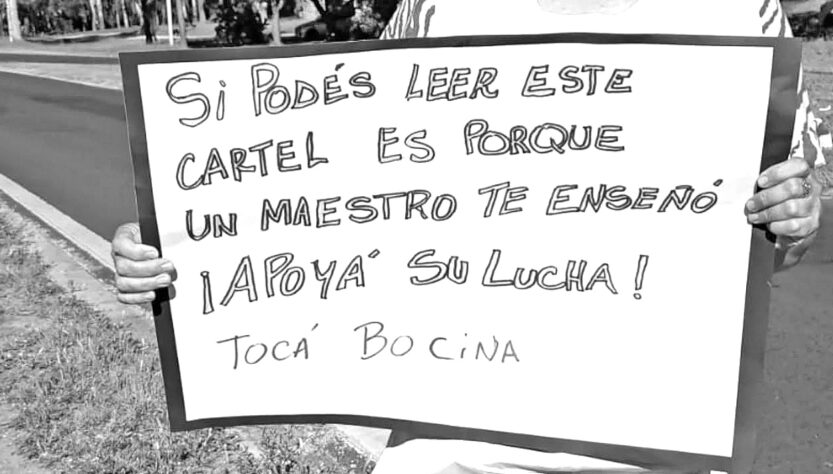 Si PODÉS LEER ESTE
CARTEL ES PORQUE
UN MAESTRO TE ENSEÑÓ
¡APOYÁ SU LUCHA!
TOCÁ BOCiNA